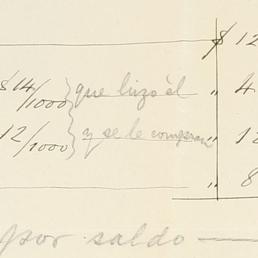 $ 12
$ 14/1000 } que hizo él " 4
12/1000 } y se le compran " 12
" 8
por saldo —